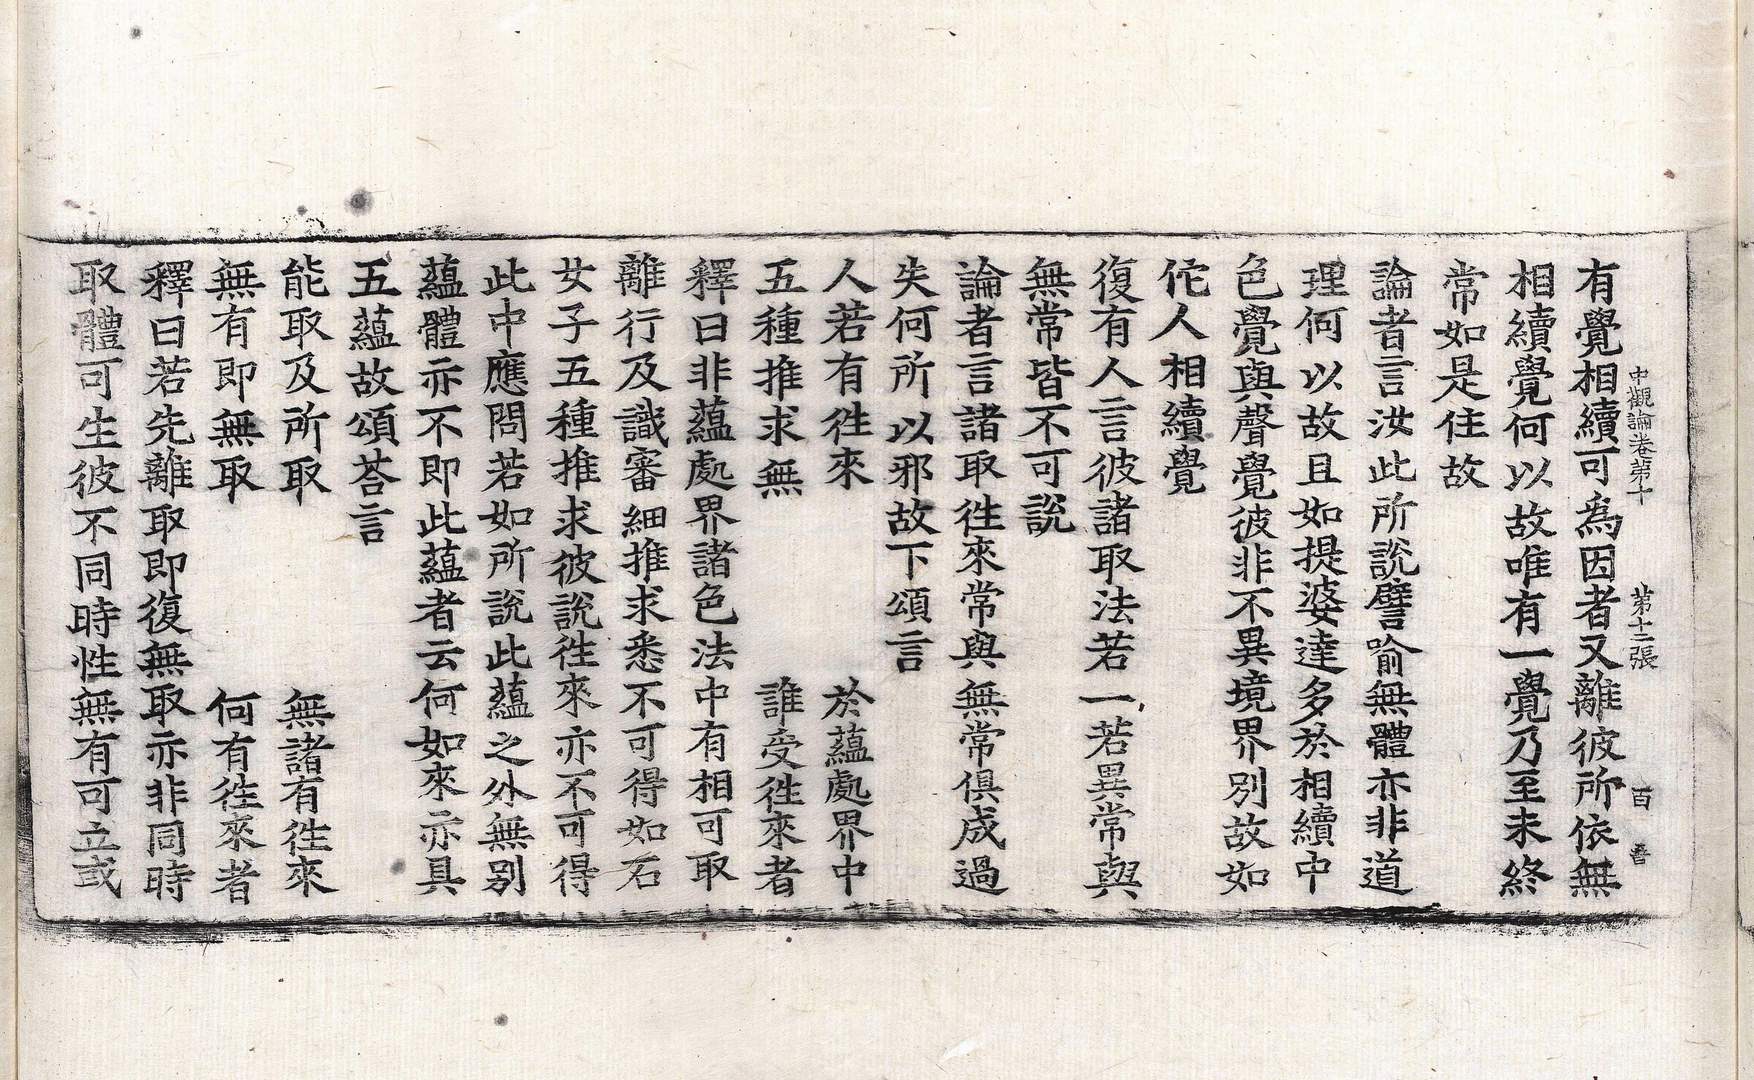 中觀論卷第十　第十二張　百　吾
有覺相續可爲因者又離彼所依無
相續覺何以故唯有一覺乃至未終
常如是住故
論者言汝此所說譬喻無體亦非道
理何以故且如提婆達多於相續中
色覺與聲覺彼非不異境界別故如
佗人相續覺
復有人言彼諸取法若一若異常與
無常皆不可說
論者言諸取徃來常與無常俱成過
失何所以邪故下頌言
人若有徃來　於蘊處界中
五種推求無　誰受徃來者
釋曰非蘊處界諸色法中有相可取
離行及識審細推求悉不可得如石
女子五種推求彼說徃來亦不可得
此中應問若如所說此蘊之外無別
蘊體亦不即此蘊者云何如來亦具
五蘊故頌荅言
能取及所取　無諸有徃來
無有即無取　何有徃來者
釋曰若先離取即復無取亦非同時
取體可生彼不同時性無有可立或